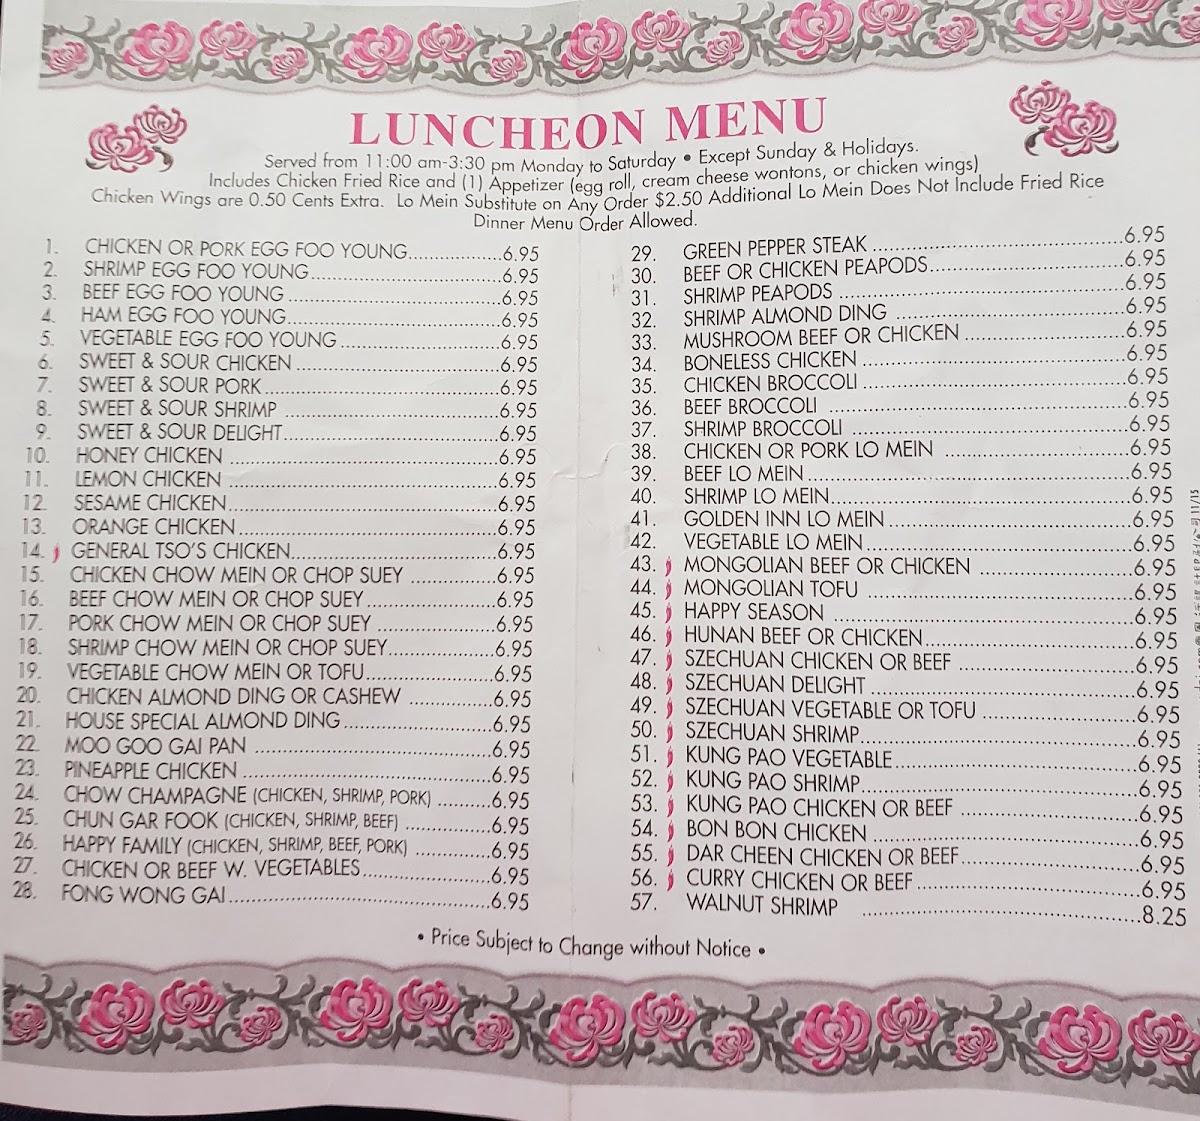 LUNCHEON MENU
Served from 11:00 am-3:30 pm Monday to Saturday • Except Sunday & Holidays.
Includes Chicken Fried Rice and (1) Appetizer (egg roll, cream cheese wontons, or chicken wings)
Chicken Wings are 0.50 Cents Extra. Lo Mein Substitute on Any Order $2.50 Additional Lo Mein Does Not Include Fried Rice
Dinner Menu Order Allowed.
1. CHICKEN OR PORK EGG FOO YOUNG 6.95
2. SHRIMP EGG FOO YOUNG 6.95
3. BEEF EGG FOO YOUNG 6.95
4. HAM EGG FOO YOUNG 6.95
5. VEGETABLE EGG FOO YOUNG 6.95
6. SWEET & SOUR CHICKEN 6.95
7. SWEET & SOUR PORK 6.95
8. SWEET & SOUR SHRIMP 6.95
9. SWEET & SOUR DELIGHT 6.95
10. HONEY CHICKEN 6.95
11. LEMON CHICKEN 6.95
12. SESAME CHICKEN 6.95
13. ORANGE CHICKEN 6.95
14. GENERAL TSO'S CHICKEN 6.95
15. CHICKEN CHOW MEIN OR CHOP SUEY 6.95
16. BEEF CHOW MEIN OR CHOP SUEY 6.95
17. PORK CHOW MEIN OR CHOP SUEY 6.95
18. SHRIMP CHOW MEIN OR CHOP SUEY 6.95
19. VEGETABLE CHOW MEIN OR TOFU 6.95
20. CHICKEN ALMOND DING OR CASHEW 6.95
21. HOUSE SPECIAL ALMOND DING 6.95
22. MOO GOO GAI PAN 6.95
23. PINEAPPLE CHICKEN 6.95
24. CHOW CHAMPAGNE (CHICKEN, SHRIMP, PORK) 6.95
25. CHUN GAR FOOK (CHICKEN, SHRIMP, BEEF) 6.95
26. HAPPY FAMILY (CHICKEN, SHRIMP, BEEF, PORK) 6.95
27. CHICKEN OR BEEF W. VEGETABLES 6.95
28. FONG WONG GAI 6.95
29. GREEN PEPPER STEAK 6.95
30. BEEF OR CHICKEN PEAPODS 6.95
31. SHRIMP PEAPODS 6.95
32. SHRIMP ALMOND DING 6.95
33. MUSHROOM BEEF OR CHICKEN 6.95
34. BONELESS CHICKEN 6.95
35. CHICKEN BROCCOLI 6.95
36. BEEF BROCCOLI 6.95
37. SHRIMP BROCCOLI 6.95
38. CHICKEN OR PORK LO MEIN 6.95
39. BEEF LO MEIN 6.95
40. SHRIMP LO MEIN 6.95
41. GOLDEN INN LO MEIN 6.95
42. VEGETABLE LO MEIN 6.95
43. MONGOLIAN BEEF OR CHICKEN 6.95
44. MONGOLIAN TOFU 6.95
45. HAPPY SEASON 6.95
46. HUNAN BEEF OR CHICKEN 6.95
47. SZECHUAN CHICKEN OR BEEF 6.95
48. SZECHUAN DELIGHT 6.95
49. SZECHUAN VEGETABLE OR TOFU 6.95
50. SZECHUAN SHRIMP 6.95
51. KUNG PAO VEGETABLE 6.95
52. KUNG PAO SHRIMP 6.95
53. KUNG PAO CHICKEN OR BEEF 6.95
54. BON BON CHICKEN 6.95
55. DAR CHEEN CHICKEN OR BEEF 6.95
56. CURRY CHICKEN OR BEEF 6.95
57. WALNUT SHRIMP 8.25
• Price Subject to Change without Notice •
11/15